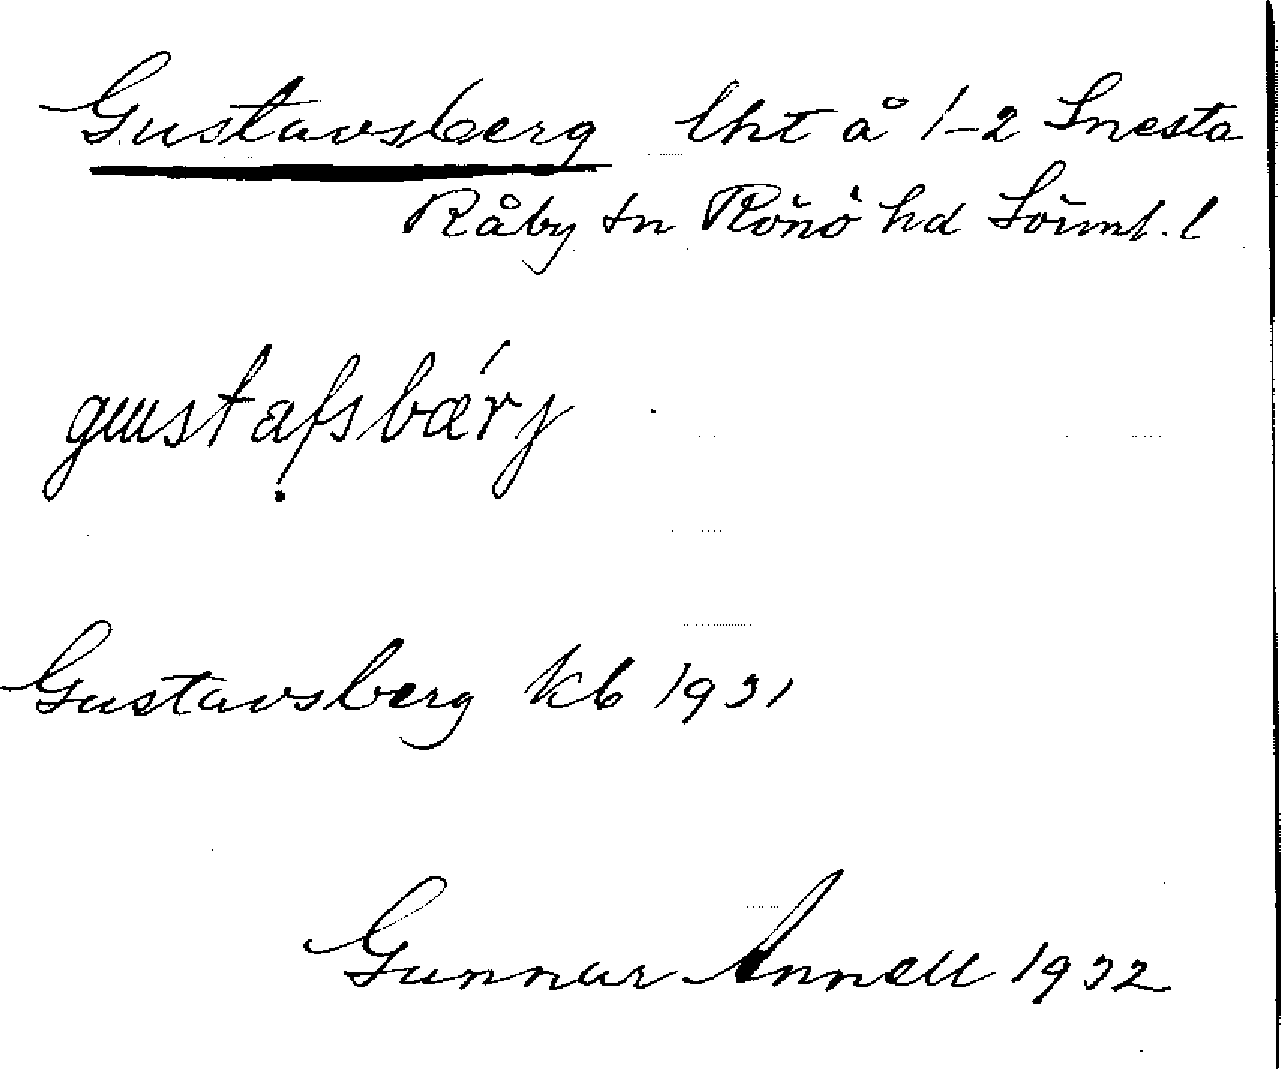 Gustavsberg lht å 1-2 Snesta
Råby sn Rönö hd Sörml. l
gustafsbærj
Gustavsberg kb 1931
Gunnar Annell 1932